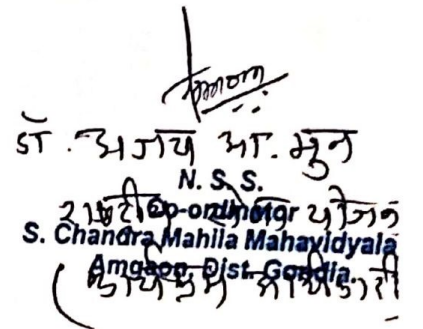 डॉ. अजय आ. मुन
N. S. S.
राष्ट्रीय योजना
Co-ordinator
S. Chandra Mahila Mahavidyala
Amgaon Dist. Gondia.
(कार्यक्रम अधिकारी